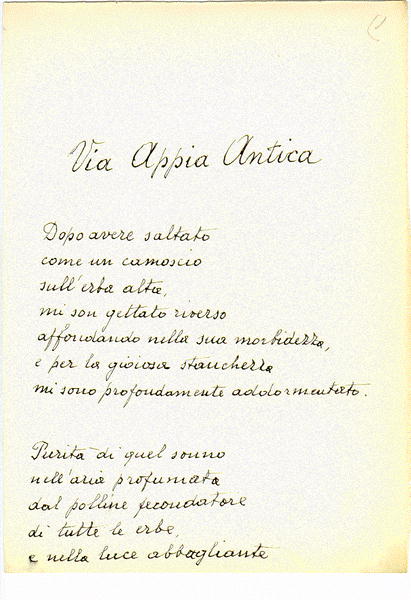 Via Appia Antica
Dopo avere saltato
come un camoscio
sull'erba alta,
mi son gettato riverso
affondando nella sua morbidezza,
e per la gioiosa stanchezza
mi sono profondamente addormentato.
Purità di quel sonno
nell'aria profumata
dal polline fecondatore
di tutte le erbe,
e nella luce abbagliante